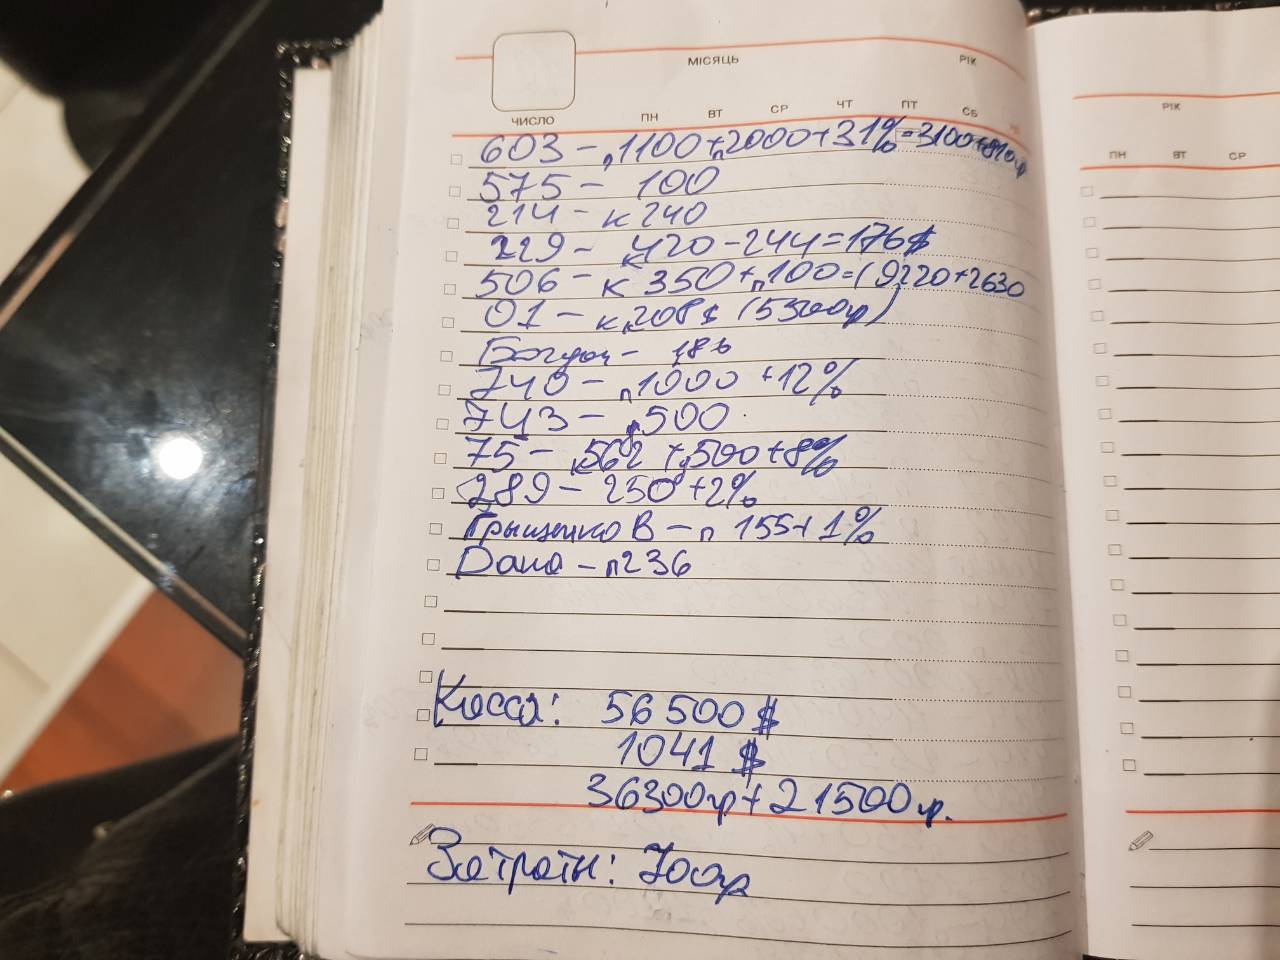 МІСЯЦЬ РІК
ЧИСЛО ПН ВТ СР ЧТ ПТ СБ
603 - п1100+п2000+31%=3100+810гр
575 - 100
214 - к 240
229 - к420-244=176$
506 - к 350+п100=(9220+2630
01 - к208$ (5300гр)
Богдан - 186
740 - п1000 +12%
743 - п500
75 - к562 +п500+8%
289 - 250+2%
Грыщенко В - п 155+1%
Dана - п236
Касса: 56 500 $
1041 $
36300гр+21500гр.
Затраты: 700гр
РІК
ПН ВТ СР